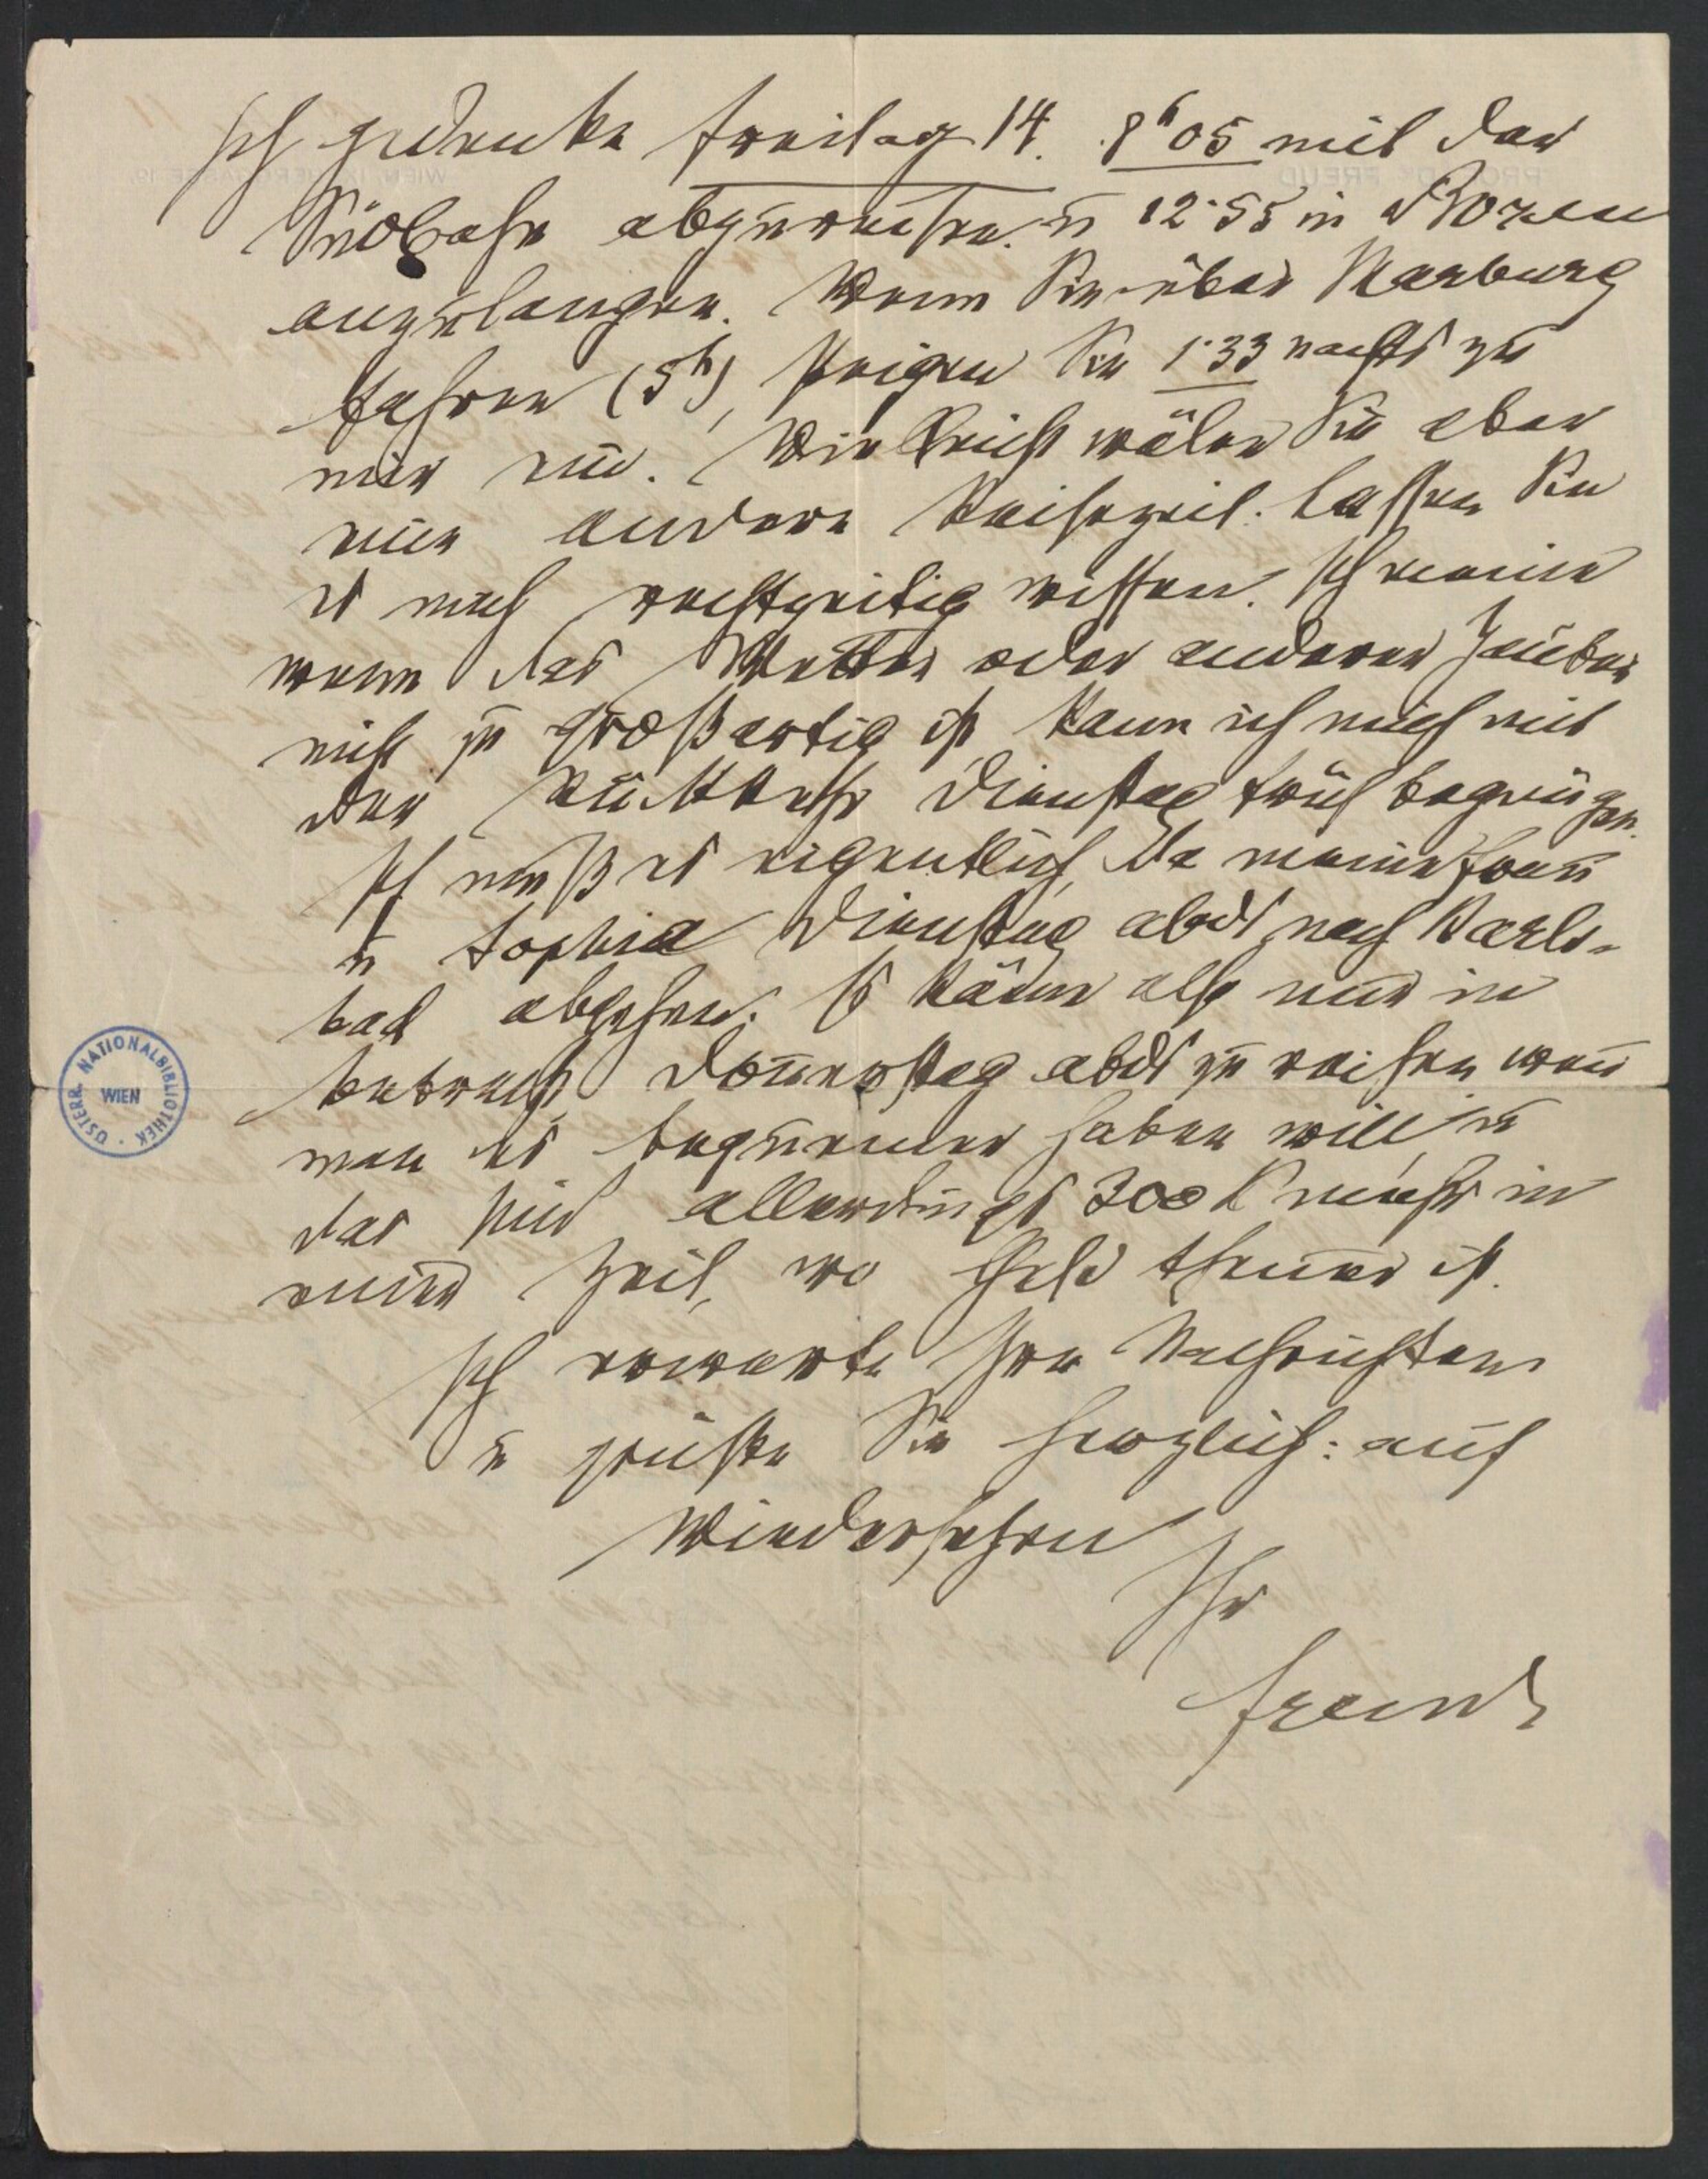 Ich gedenke Freitag 14. 8h 05 mit der
Südbahn abzureisen u 12·55 in Bozen
anzulangen. Wenn Sie über Marburg
fahren (5h), steigen Sie 1·33 nachts zu
mir ein. Vielleicht wälen Sie aber
eine andere Reisezeit. Lassen Sie
es mich rechtzeitig wissen. Ich meine
wenn das Wetter oder anderer Zauber
nicht zu großartig ist, kann ich mich mit
der Rückkehr Dienstag früh begnügen.
Ich muß es eigentlich, da meine Frau
u Sophie Dienstag abds nach Karls-
bad abgehen. Es käme also nur in
betracht, Donnerstag abds zu reisen wenn
man es bequemer haben will, u
das sind allerdings 300 K mehr in
einer Zeit, wo Geld theuer ist.
Ich erwarte Ihre Nachrichten
u grüße Sie herzlich: auf
Wiedersehen
Ihr
Freud
ÖSTERR. NATIONALBIBLIOTHEK · WIEN